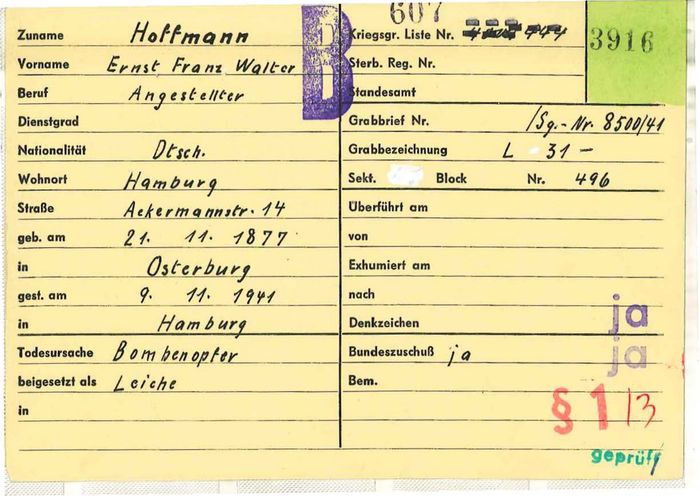 607
3916
B
Zuname Hoffmann
Vorname Ernst Franz Walter
Beruf Angestellter
Dienstgrad
Nationalität Dtsch.
Wohnort Hamburg
Straße Ackermannstr. 14
geb. am 21. 11. 1877
in Osterburg
gest. am 9. 11. 1941
in Hamburg
Todesursache Bombenopfer
beigesetzt als Leiche
in
Kriegsgr. Liste Nr.
Sterb. Reg. Nr.
Standesamt
Grabbrief Nr. /Sg.-Nr. 8500/41
Grabbezeichnung L 31 -
Sekt. Block Nr. 496
Überführt am
von
Exhumiert am
nach
Denkzeichen ja
Bundeszuschuß ja ja
Bem.
§ 1/3
geprüft